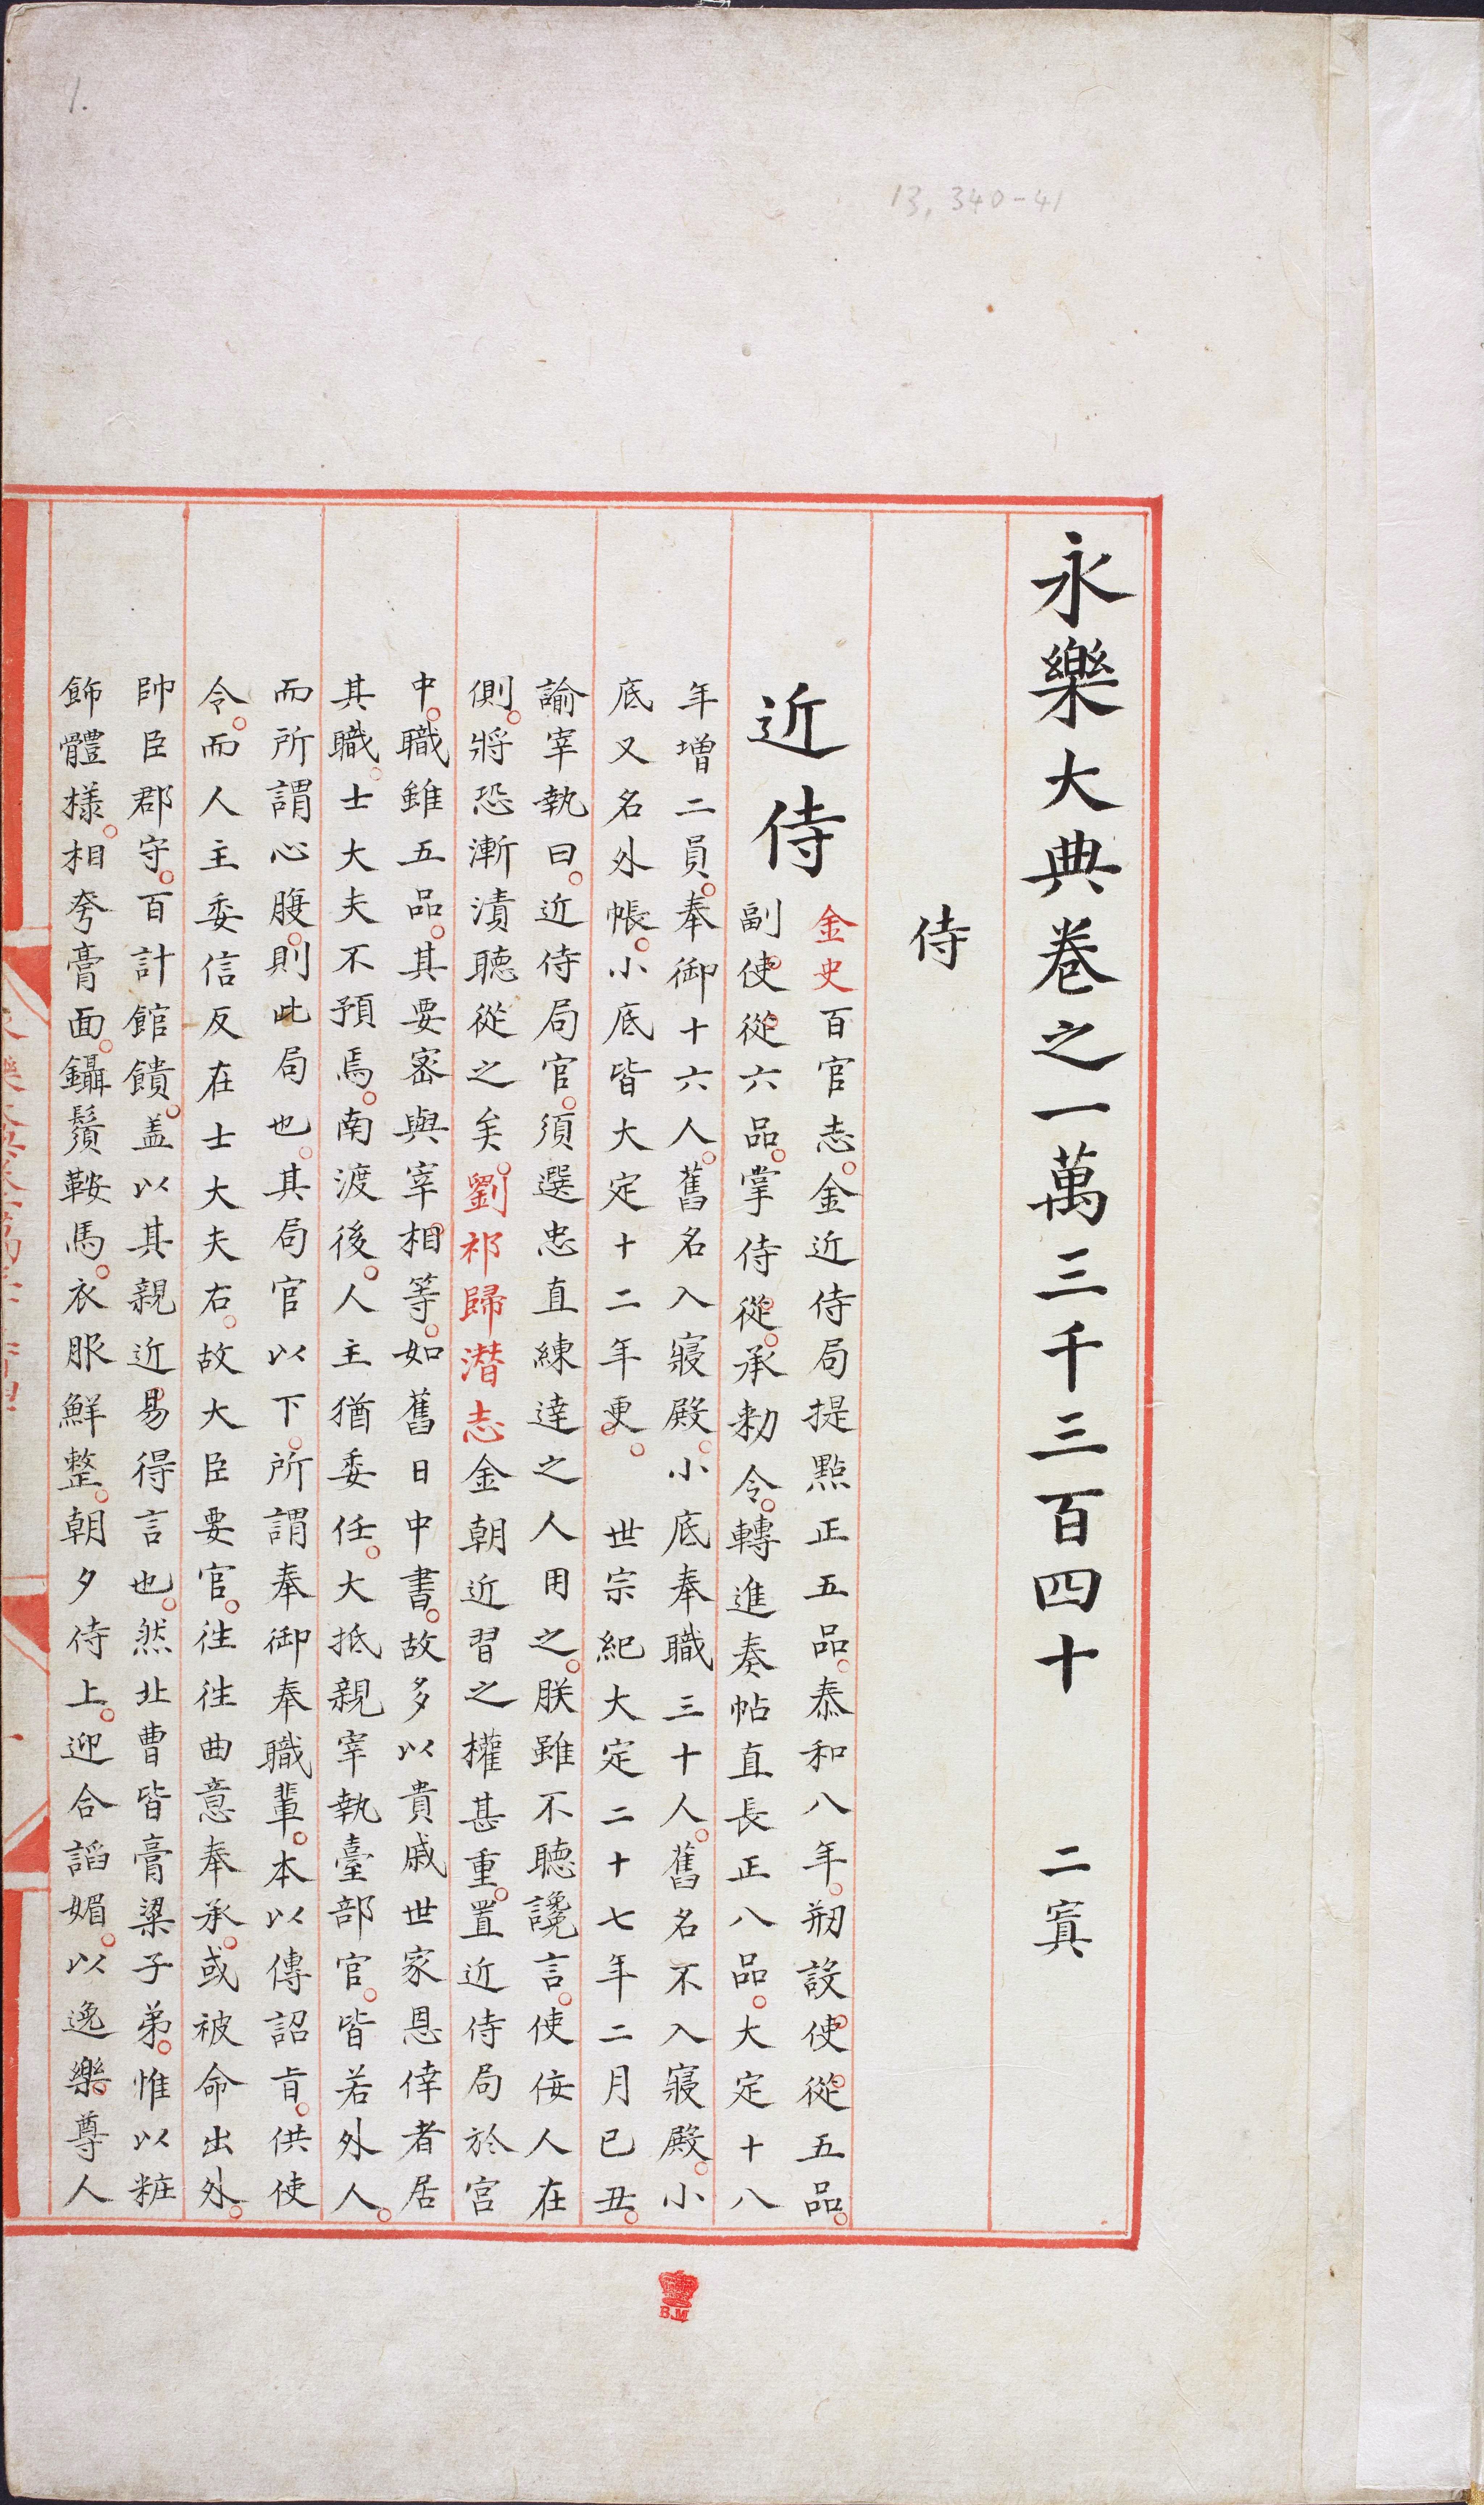 1.
13,340-41
永樂大典卷之一萬三千三百四十 二寘
侍
近侍
金史百官志金近侍局提點正五品泰和八年剏設使從五品
副使從六品掌侍從承勑令轉進奏帖直長正八品大定十八
年增二員奉御十六人舊名入寢殿小底奉職三十人舊名不入寢殿小
底又名外帳小底皆大定十二年更 世宗紀大定二十七年二月己丑
諭宰執曰近侍局官須選忠直練達之人用之朕雖不聽讒言使佞人在
側將恐漸漬聽從之矣劉祁歸潛志金朝近習之權甚重置近侍局於宮
中職雖五品其要密與宰相等如舊日中書故多以貴戚世家恩倖者居
其職士大夫不預焉南渡後人主猶委任大抵親宰執臺部官皆若外人
而所謂心腹則此局也其局官以下所謂奉御奉職輩本以傳詔旨供使
令而人主委信反在士大夫右故大臣要官徃徃曲意奉承或被命出外
帥臣郡守百計館饋盖以其親近易得言也然此曹皆膏粱子弟惟以粧
飾體樣相夸膏面鑷鬚鞍馬衣服鮮整朝夕侍上迎合諂媚以逸樂尊人
B.M